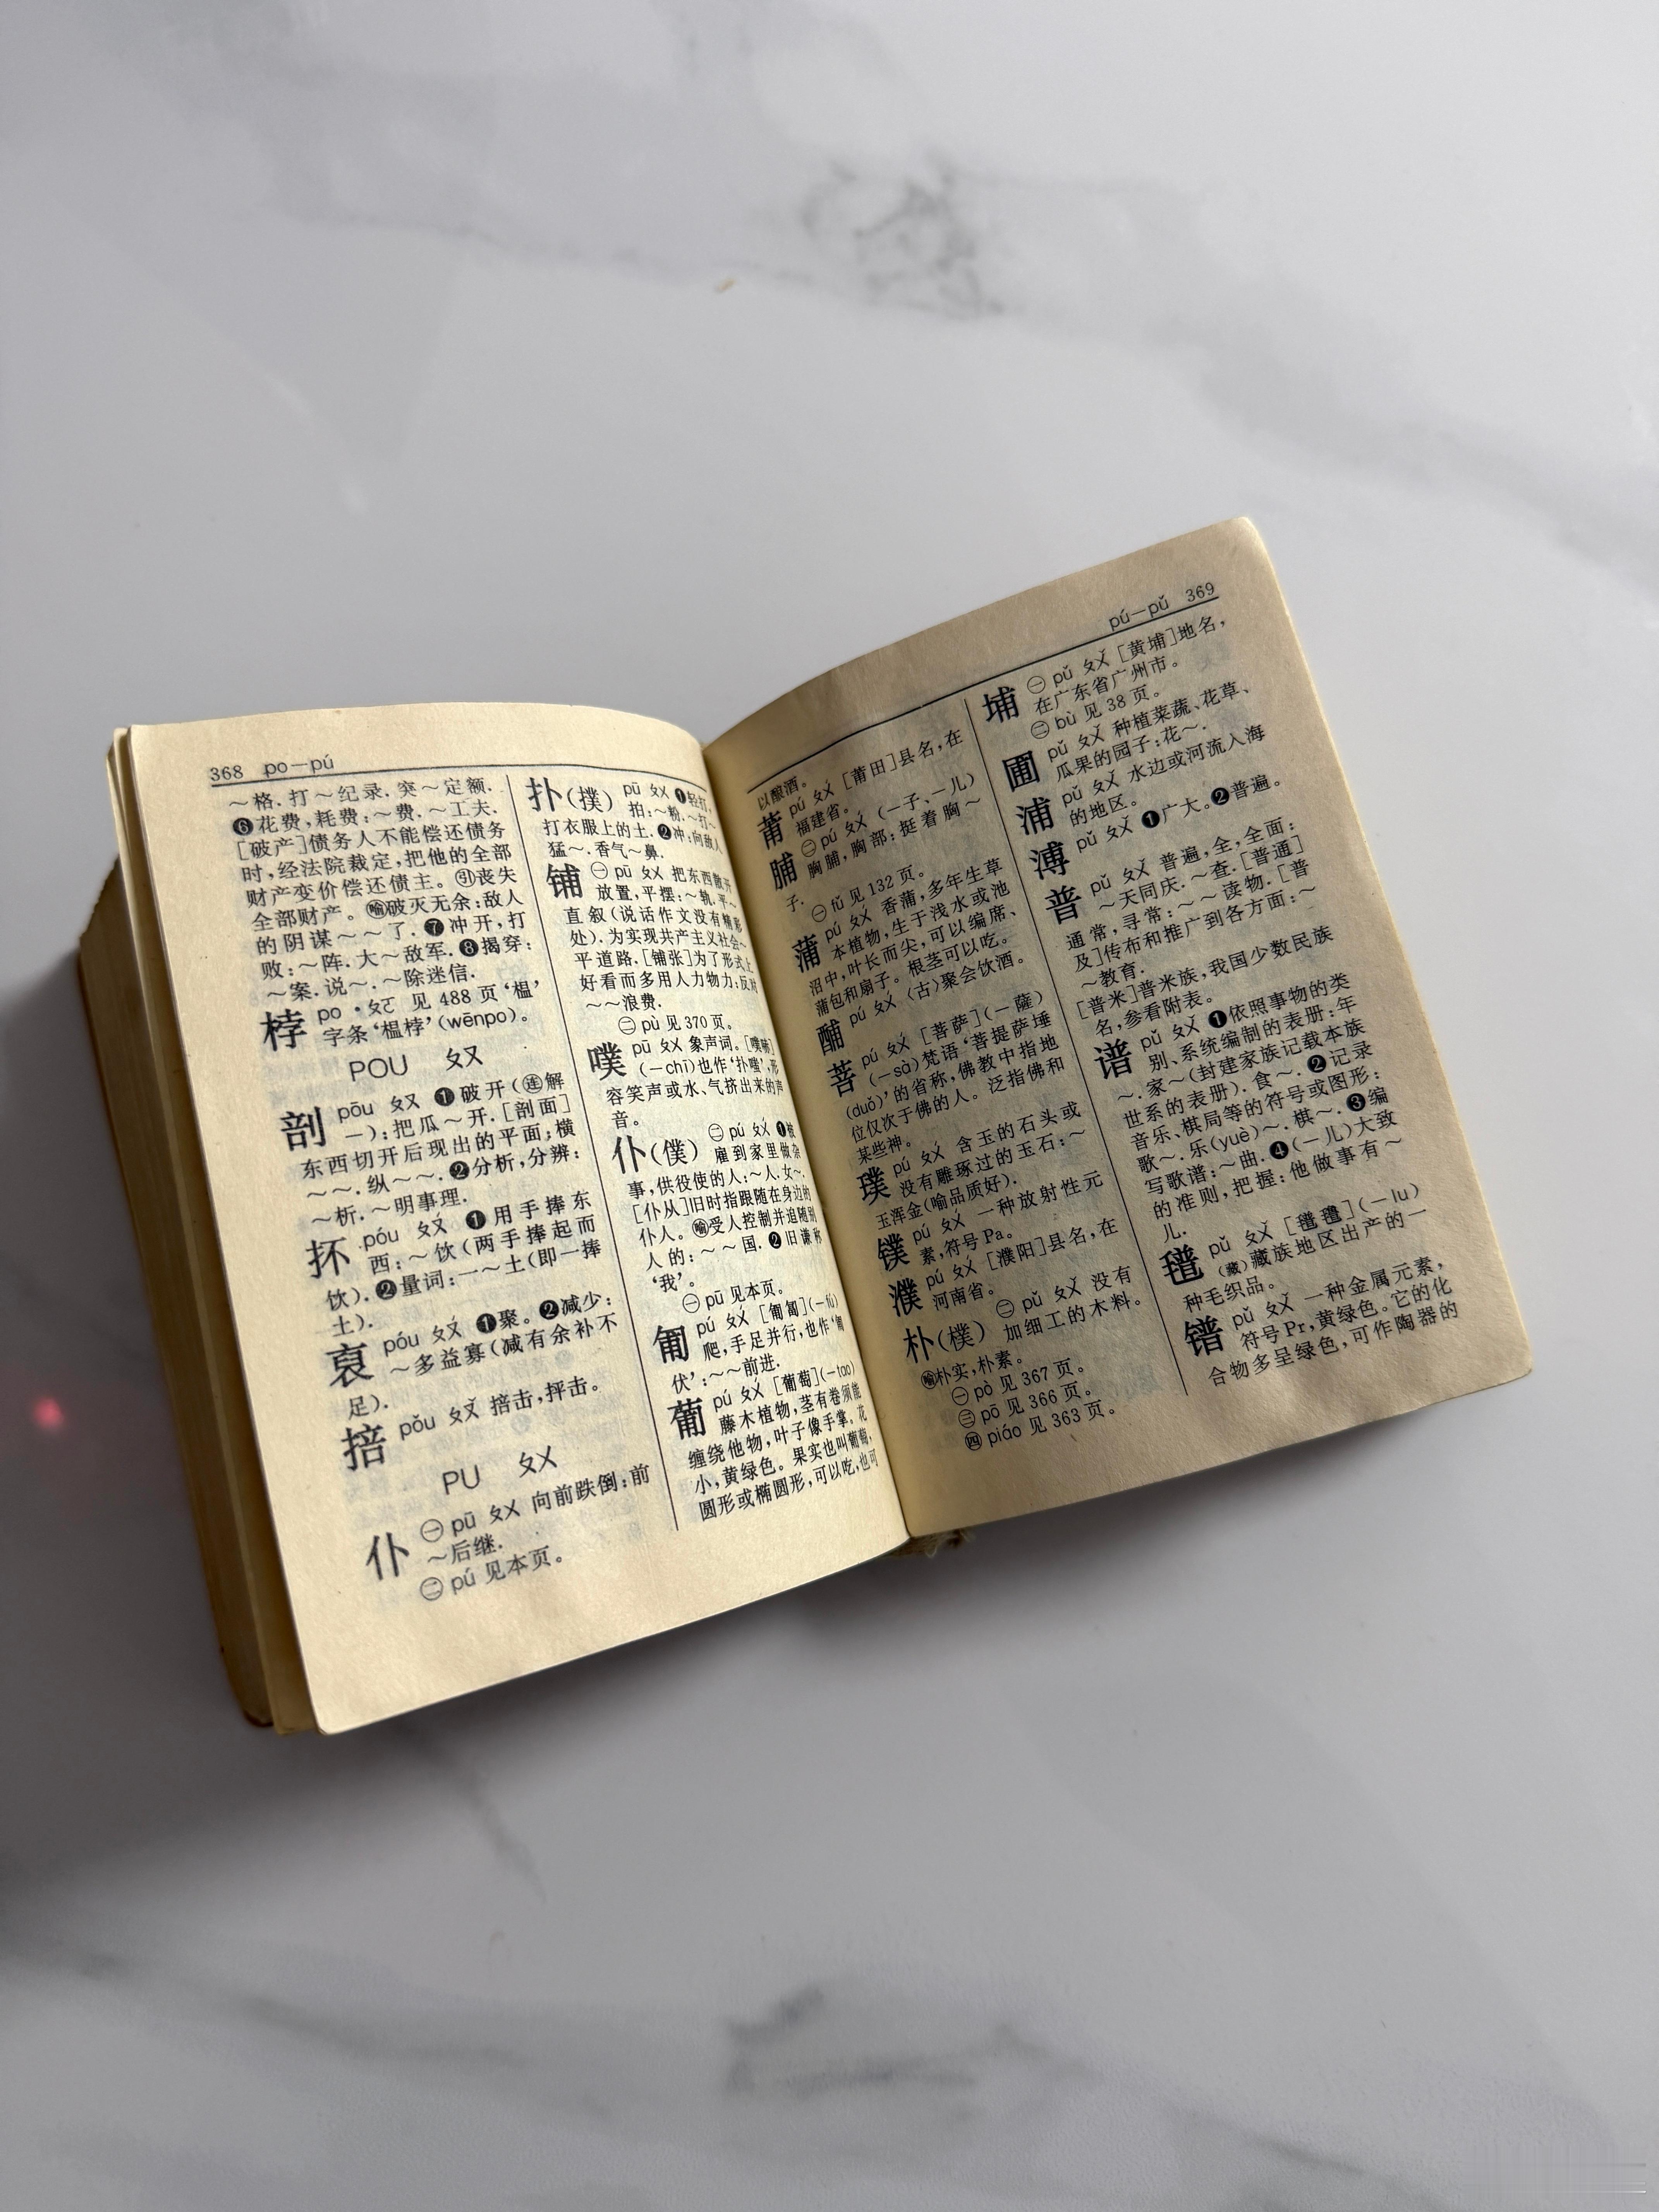 368 po—pú
～格.打～纪录.突～定额.
❻花费,耗费:～费.～工夫.
[破产]债务人不能偿还债务
时,经法院裁定,把他的全部
财产变价偿还债主。㊁丧失
全部财产。㊄破灭无余:敌人
的阴谋～～了.❼冲开,打
败:～阵.大～敌军.❽揭穿:
～案.说～.～除迷信.
桲 po ·ㄆㄛ 见 488 页‘榅’
字条‘榅桲’(wēnpo)。
POU ㄆㄡ
剖 pōu ㄆㄡ ❶破开(㊤解
—):把瓜～开.[剖面]
东西切开后现出的平面:横
～～.纵～～.❷分析,分辨:
～析.～明事理.
抔 póu ㄆㄡˊ ❶用手捧东
西:～饮(两手捧起而
饮).❷量词:一～土(即一捧
土).
裒 póu ㄆㄡˊ ❶聚。❷减少:
～多益寡(减有余补不
足).
掊 pǒu ㄆㄡˇ 掊击,抨击。
PU ㄆㄨ
仆 ㊀ pū ㄆㄨ 向前跌倒:前
～后继.
㊁ pú 见本页。
扑(撲) pū ㄆㄨ ❶轻打,
拍:～粉.～打～
打衣服上的土.❷冲:向敌人
猛～.香气～鼻.
铺 ㊀ pū ㄆㄨ 把东西散开
放置,平摆:～轨.平～
直叙(说话作文没有精彩
处).为实现共产主义社会～
平道路.[铺张]为了形式上
好看而多用人力物力:反对
～～浪费.
㊁ pù 见 370 页。
噗 pū ㄆㄨ 象声词。[噗嗤]
(—chī)也作‘扑嗤’,形
容笑声或水、气挤出来的声
音。
仆(僕) ㊁ pú ㄆㄨˊ ❶被
雇到家里做杂
事,供役使的人:～人.女～.
[仆从]旧时指跟随在身边的
仆人。㊄受人控制并追随别
人的:～～国.❷旧谦称
‘我’。
㊀ pū 见本页。
匍 pú ㄆㄨˊ [匍匐](—fú)
爬,手足并行,也作‘匍
伏’:～～前进.
葡 pú ㄆㄨˊ [葡萄](—tao)
藤木植物,茎有卷须能
缠绕他物,叶子像手掌。花
小,黄绿色。果实也叫葡萄,
圆形或椭圆形,可以吃,也可
pú—pǔ 369
以酿酒。
莆 pú ㄆㄨˊ [莆田]县名,在
福建省。
脯 ㊁ pú ㄆㄨˊ (—子、—儿)
胸脯,胸部:挺着胸～
子.
㊀ fǔ 见 132 页。
蒲 pú ㄆㄨˊ 香蒲,多年生草
本植物,生于浅水或池
沼中,叶长而尖,可以编席、
蒲包和扇子。根茎可以吃。
酺 pú ㄆㄨˊ 〈古〉聚会饮酒。
菩 pú ㄆㄨˊ [菩萨](—薩)
(—sà)梵语‘菩提萨埵
(duǒ)’的省称,佛教中指地
位仅次于佛的人。泛指佛和
某些神。
璞 pú ㄆㄨˊ 含玉的石头或
没有雕琢过的玉石:～
玉浑金(喻品质好).
镤 pú ㄆㄨˊ 一种放射性元
素,符号 Pa。
濮 pú ㄆㄨˊ [濮阳]县名,在
河南省。
朴(樸) ㊁ pǔ ㄆㄨˇ 没有
加细工的木料。
㊄朴实,朴素。
㊀ pò 见 367 页。
㊂ pō 见 366 页。
㊃ piáo 见 363 页。
埔 ㊀ pǔ ㄆㄨˇ [黄埔]地名,
在广东省广州市。
㊁ bù 见 38 页。
圃 pǔ ㄆㄨˇ 种植菜蔬、花草、
瓜果的园子:花～.
浦 pǔ ㄆㄨˇ 水边或河流入海
的地区。
溥 pǔ ㄆㄨˇ ❶广大。❷普遍。
普 pǔ ㄆㄨˇ 普遍,全,全面:
～天同庆.～查.[普通]
通常,寻常:～～读物.[普
及]传布和推广到各方面:～
～教育.
[普米]普米族,我国少数民族
名,参看附表。
谱 pǔ ㄆㄨˇ ❶依照事物的类
别、系统编制的表册:年
～.家～(封建家族记载本族
世系的表册).食～.❷记录
音乐、棋局等的符号或图形:
歌～.乐(yuè)～.棋～.❸编
写歌谱:～曲.❹(—儿)大致
的准则,把握:他做事有～
儿.
氆 pǔ ㄆㄨˇ [氆氇](—lu)
(藏)藏族地区出产的一
种毛织品。
镨 pǔ ㄆㄨˇ 一种金属元素,
符号 Pr,黄绿色。它的化
合物多呈绿色,可作陶器的